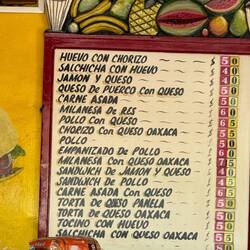 HUEVO CON CHORIZO $ 50
SALCHICHA CON HUEVO $ 50
JAMON Y QUESO $ 50
QUESO DE PUERCO CON QUESO
CARNE ASADA
MILANESA DE RES
POLLO CON QUESO
CHORIZO CON QUESO OAXACA
POLLO
EMPANIZADO DE POLLO
MILANESA CON QUESO OAXACA
SANDWICH DE JAMON Y QUESO
SANDWICH DE POLLO
CARNE ASADA CON QUESO
TORTA DE QUESO PANELA
TORTA DE QUESO OAXACA
TOCINO CON HUEVO
SALCHICHA CON QUESO OAXACA